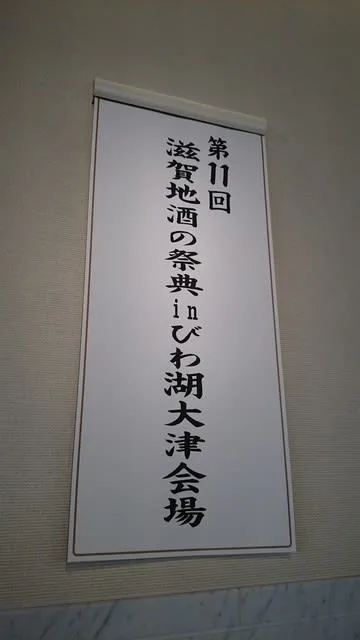 第11回
滋賀地酒の祭典inびわ湖大津会場